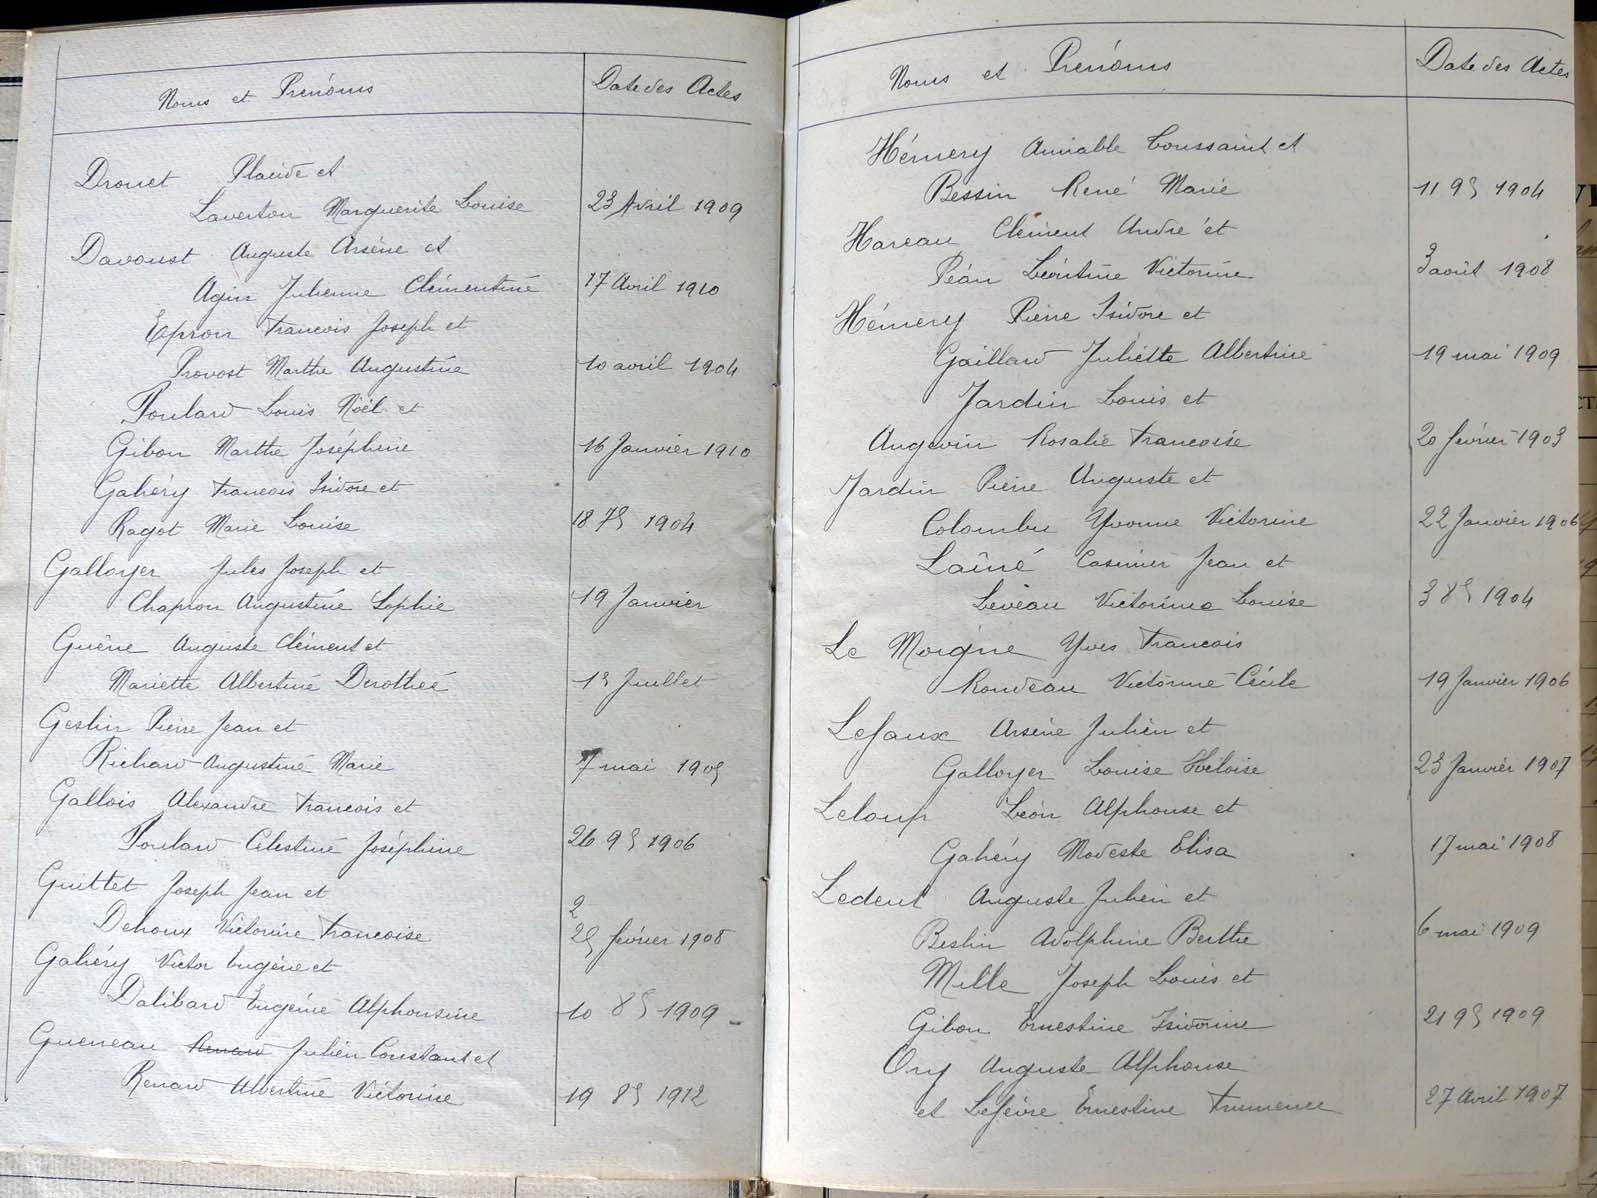 Noms et Prénoms Date des Actes
Drouet Placide et
Laverton Marguerite Louise 23 Avril 1909
Davoust Auguste Arsène et
Agin Julienne Clémentine 17 Avril 1910
Epron Francois Joseph et
Provost Marthe Augustine 10 avril 1904
Foulard Louis Noël et
Gibon Marthe Joséphine 16 Janvier 1910
Gahéry Francois Isidore et
Ragot Marie Louise 18 7S 1904
Galloyer Jules Joseph et
Chapron Augustine Sophie 19 Janvier
Guérie Auguste Clément et
Mariette Albertine Dorothée 13 Juillet
Geslin Pierre Jean et
Richard Augustine Marie 7 mai 1905
Gallois Alexandre Francois et
Foulard Célestine Joséphine 26 9S 1906
Guittet Joseph Jean et
2
Dehoux Victorine Francoise 25 février 1908
Gahéry Victor Eugène et
Dalibard Eugénie Alphonsine 10 8S 1909
Gueneau Renard Julien Constant et
Renard Albertine Victorine 19 8S 1912
Noms et Prénoms Date des Actes
Hémery Aimable Toussaint et
Bessin René Marie 11 9S 1904
Hareau Clément André et
Péan Léontine Victorine 3 août 1908
Hémery Pierre Isidore et
Gaillard Juliette Albertine 19 mai 1909
Jardin Louis et
Angevin Rosalie Francoise 20 février 1903
Jardin Pierre Auguste et
Colombu Yvonne Victorine 22 Janvier 1906
Laîné Casimir Jean et
Leveau Victorine Louise 3 8S 1904
Le Moigne Yves Francois
Rondeau Victorine Cécile 19 Janvier 1906
Lefaux Arsène Julien et
Galloyer Louise Héloise 23 Janvier 1907
Leloup Léon Alphonse et
Gahéry Modeste Elisa 17 mai 1908
Ledent Auguste Julien et
Beslin Adolphine Berthe 6 mai 1909
Mille Joseph Louis et
Gibon Ernestine Isidorine 21 9S 1909
Ory Auguste Alphonse
et Lefèvre Ernestine 27 Avril 1907